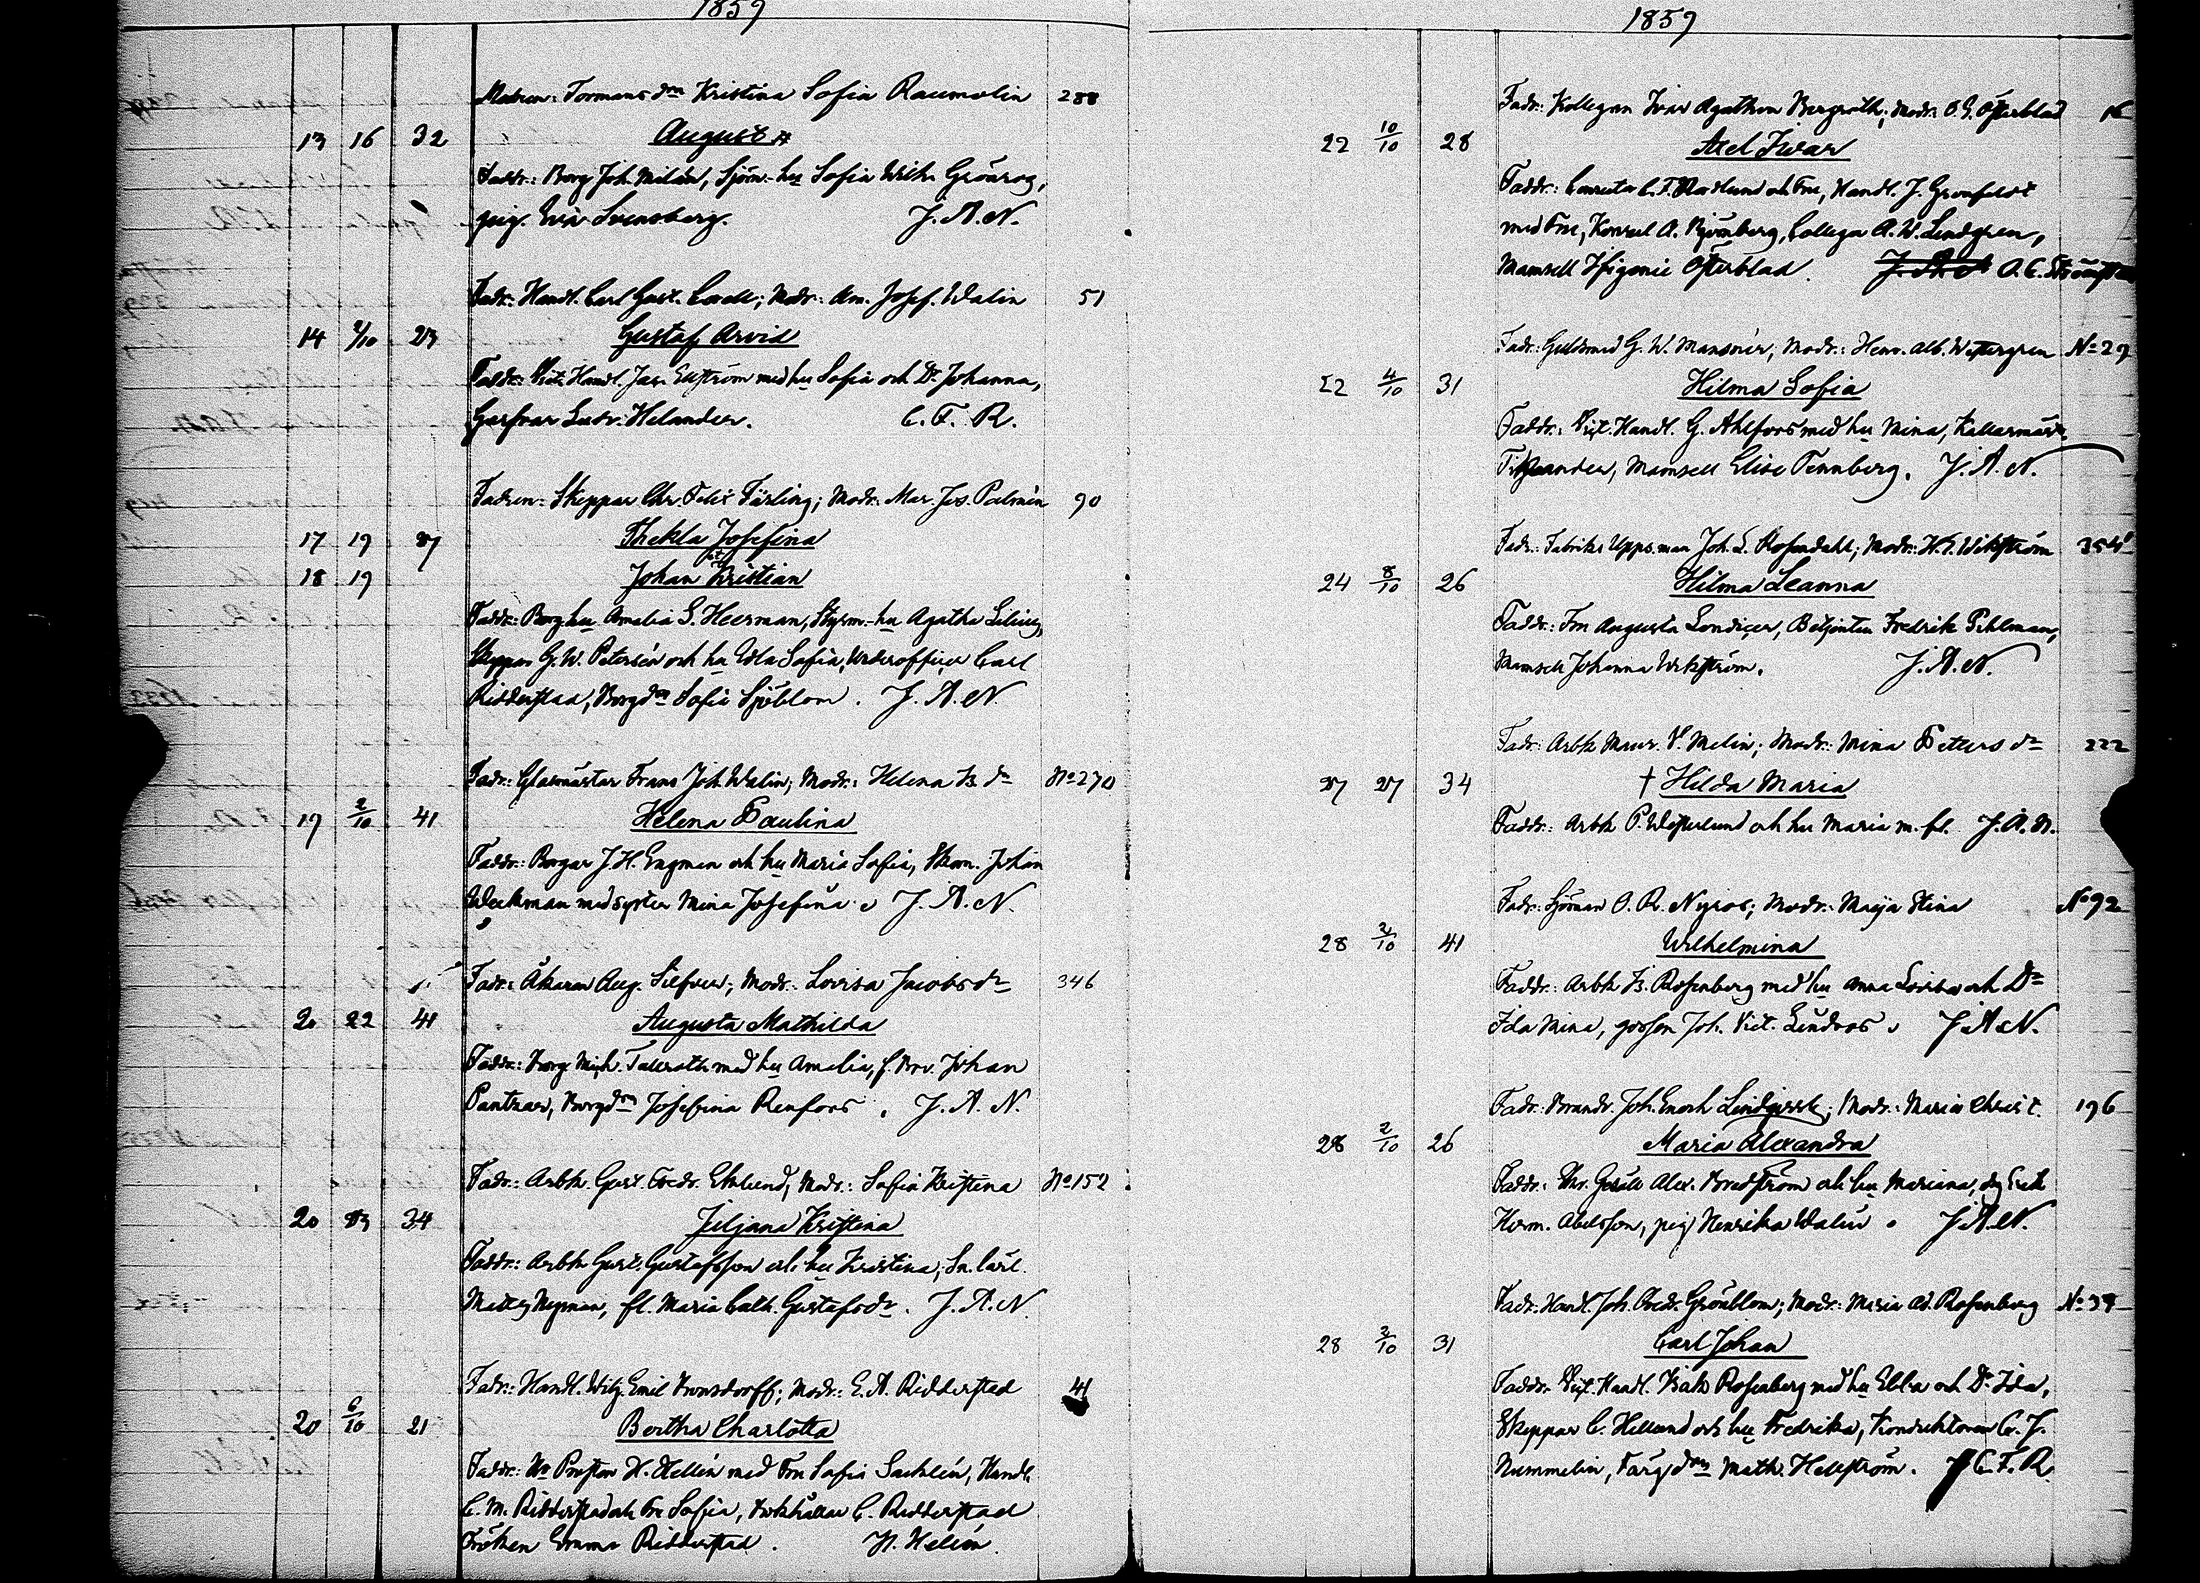 1859
Modren: Tormans dn Kristina Sofia Raumolin 288
13 16 32 August
Faddr: Borg Joh. Milén, Sjöm. hu Sofia Wilh. Grönroos,
pig. Eva Svensberg. J. A. N.
Fadr: Handl. Carl Gust. Modr: Am. Josef. Walin 51
14 2/10 23 Gustaf Arvid
Faddr: Vict. Handl. Jac. Enström med hu Sofia och Dr Johanna,
Garfvar Ludv. Helander. C. F. R.
Fadren: Skeppar Chr. Felix Färling; Modr: Mar. Jos. Palmén 90
17 19 27 Thekla Josefina
et
18 19 Johan Kristian
Faddr: Borg. hu Amalia S. Heerman, Styrm. hu Agatha
Skeppar G. W. Petersén och hu Edla Sofia, Underofficer Carl
Ridderstad, Borg dn Sofia Sjöblom. J. A. N.
Fadr: Glasmästar Frans Joh. Walin; Modr: Helena B. dr No 270
19 2/10 41 Helena Paulina
Faddr: Borgar J. H. Engman och hu Maria Sofia, Johan
Weckman med syster Mina Josefina. J. A. N.
Fadr: Åkaren Aug. Silfver; Modr: Lovisa Jacobs dr 346
20 22 41 Augusta Mathilda
Faddr: Borg. Mich. Tallroth med hu Amalia, f. Johan
Pantzar, Borg dn Josefina Renfors. J. A. N.
Fadr: Arbk. Gust. Fredr. Eklund; Modr: Sofia Kristina No 152
20 23 34 Juljana Kristina
Faddr: Arbk. Gust. Gustafsson och hu Kristina, Sn. Carl
Matts Nyman, fl. Maria Cath. Gustafs dr. J. A. N.
Fadr: Handl. Emil Modr: E. A. Ridderstad 41
20 6/10 21 Bertha Charlotta
Faddr: Hr Prosten H. Hellén med Fru Sofia Handl.
C. M. Ridderstad och Fru Sofia, Bokhållar C. Ridderstad
Fröken Emma Ridderstad. H. Hellén
1859
Fadr: Kollegan Ivar Agathon Bergroth; Modr: O. E. Österblad 16
22 10/10 28 Axel Ivar
Faddr: C. F. och Fru, Handl. J. Grönfeldt
med Fru, Konsul A. Björnberg, Collega A. W. Lindgren,
Mamsell Ifigenie Österblad. J. A. N. A. C.
Fadr: Guldsmed G. W. Mansnér; Modr: Henr. Alb. Westergren No 29
22 4/10 31 Hilma Sofia
Faddr: Vict. Handl. G. Ahlfors med hu Mina, Källarmäst.
Mamsell Elise Tennberg. J. A. N.
Fadr: Fabriks Upps. man Joh. L. Rosendahl; Modr: H. S. Wikström 354
24 8/10 26 Hilma Leanna
Faddr: Fru Augusta Londicer, Betjenten Fredrik Pihlman,
Mamsell Johanna Wikström. J. A. N.
Fadr: Arbk. Maur. V. Melin; Modr: Mina Petters dr 222
27 27 34 † Hilda Maria
Faddr: Arbk. P. Westerlund och hu Maria m. fl. J. A. N.
Fadr: Sjöman O. R. Nyroos; Modr: Maija Stina No 92
28 2/10 41 Wilhelmina
Faddr: Arbk. B. Rosenberg med hu Anna Lovisa och Dr
Ida Mina, gossen Joh. Vict. Lindroos. J. A. N.
Fadr: Brandv. Joh. Enoch Lindqvist; Modr: Maria Christ. 196
28 2/10 26 Maria Alexandra
Faddr: Skr. Gesäll Alex. Brodström och hu Mariana, dg Erik
Herm. Abelsson, pig. Henrika Walin. J. A. N.
Fadr: Handl. Joh. Fredr. Grönblom; Modr: Maria Ad. Rosenberg No 39
28 3/10 31 Carl Johan
Faddr: Vict. Handl. Isak Rosenberg med hu Ebba och Dr Ida,
Skeppar C. Hellund och hu Fredrika, Konduktoren C. J.
Nummelin, Färg. dn Math. Hellström. C. F. R.